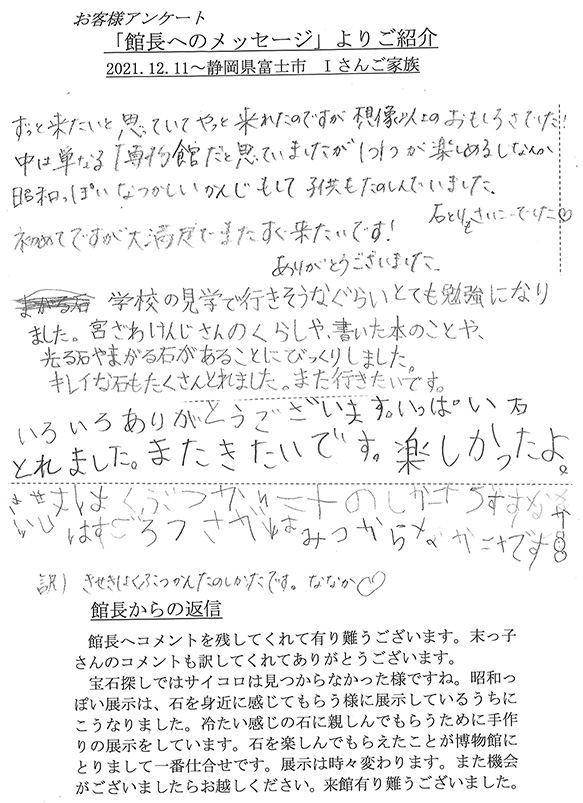 お客様アンケート
「館長へのメッセージ」よりご紹介
2021.12.11～静岡県富士市　Ｉさんご家族
ずっと来たいと思っていてやっと来れたのですが 想像以上のおもしろさでした！
中は単なる「博物館だと思っていましたが 1つ1つが楽しめるしなんか
昭和っぽいなつかしいかんじもして子供もたのしんでいました。
石とり さいこーでした♡
初めてですが大満足でまたすぐ来たいです！
ありがとうございました。
まがる石 学校の見学で行きそうなぐらいとても勉強になり
ました。宮ざわけんじさんのくらしや、書いた本のことや、
光る石やまがる石があることにびっくりしました。
キレイな石もたくさんとれました。また行きたいです。
いろいろありがとうございます。いっぱい石
とれました。またきたいです。楽しかったよ。
はくぶつかん のしかた
さがし みつから です
訳） きせきはくぶつかんたのしかたです。ななか♡
館長からの返信
館長へコメントを残してくれて有り難うございます。末っ子
さんのコメントも訳してくれてありがとうございます。
宝石探しではサイコロは見つからなかった様ですね。昭和っ
ぽい展示は、石を身近に感じてもらう様に展示しているうちに
こうなりました。冷たい感じの石に親しんでもらうために手作
りの展示をしています。石を楽しんでもらえたことが博物館に
とりまして一番仕合せです。展示は時々変わります。また機会
がございましたらお越しください。来館有り難うございました。